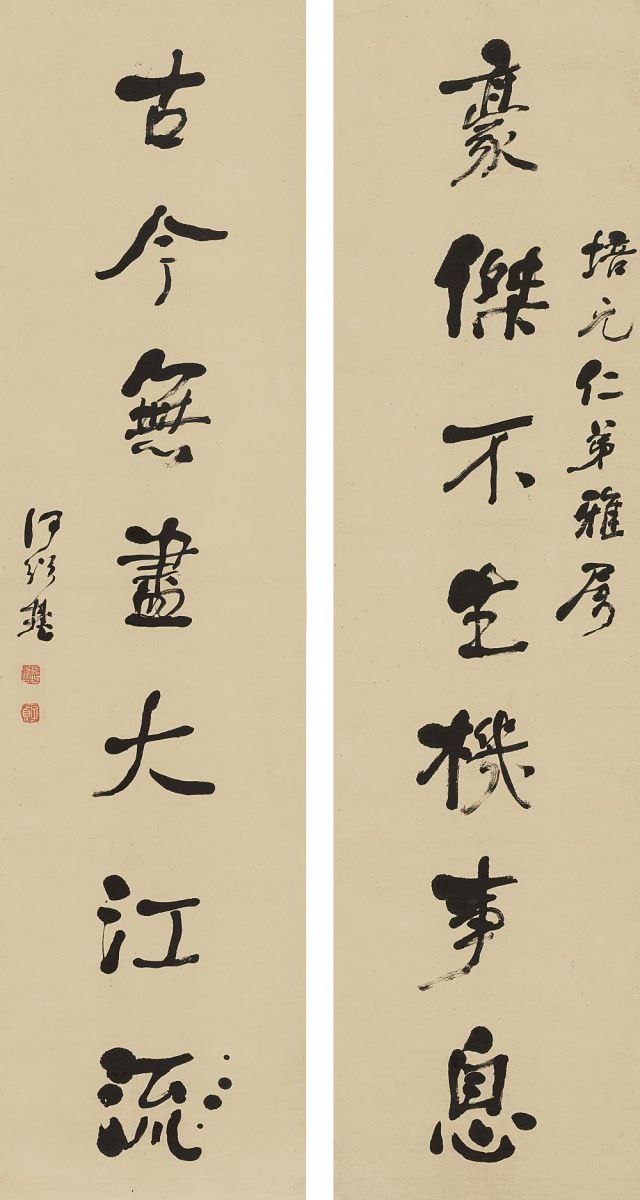 培元仁弟雅屬
豪傑不生機事息
古今無盡大江流
何紹基